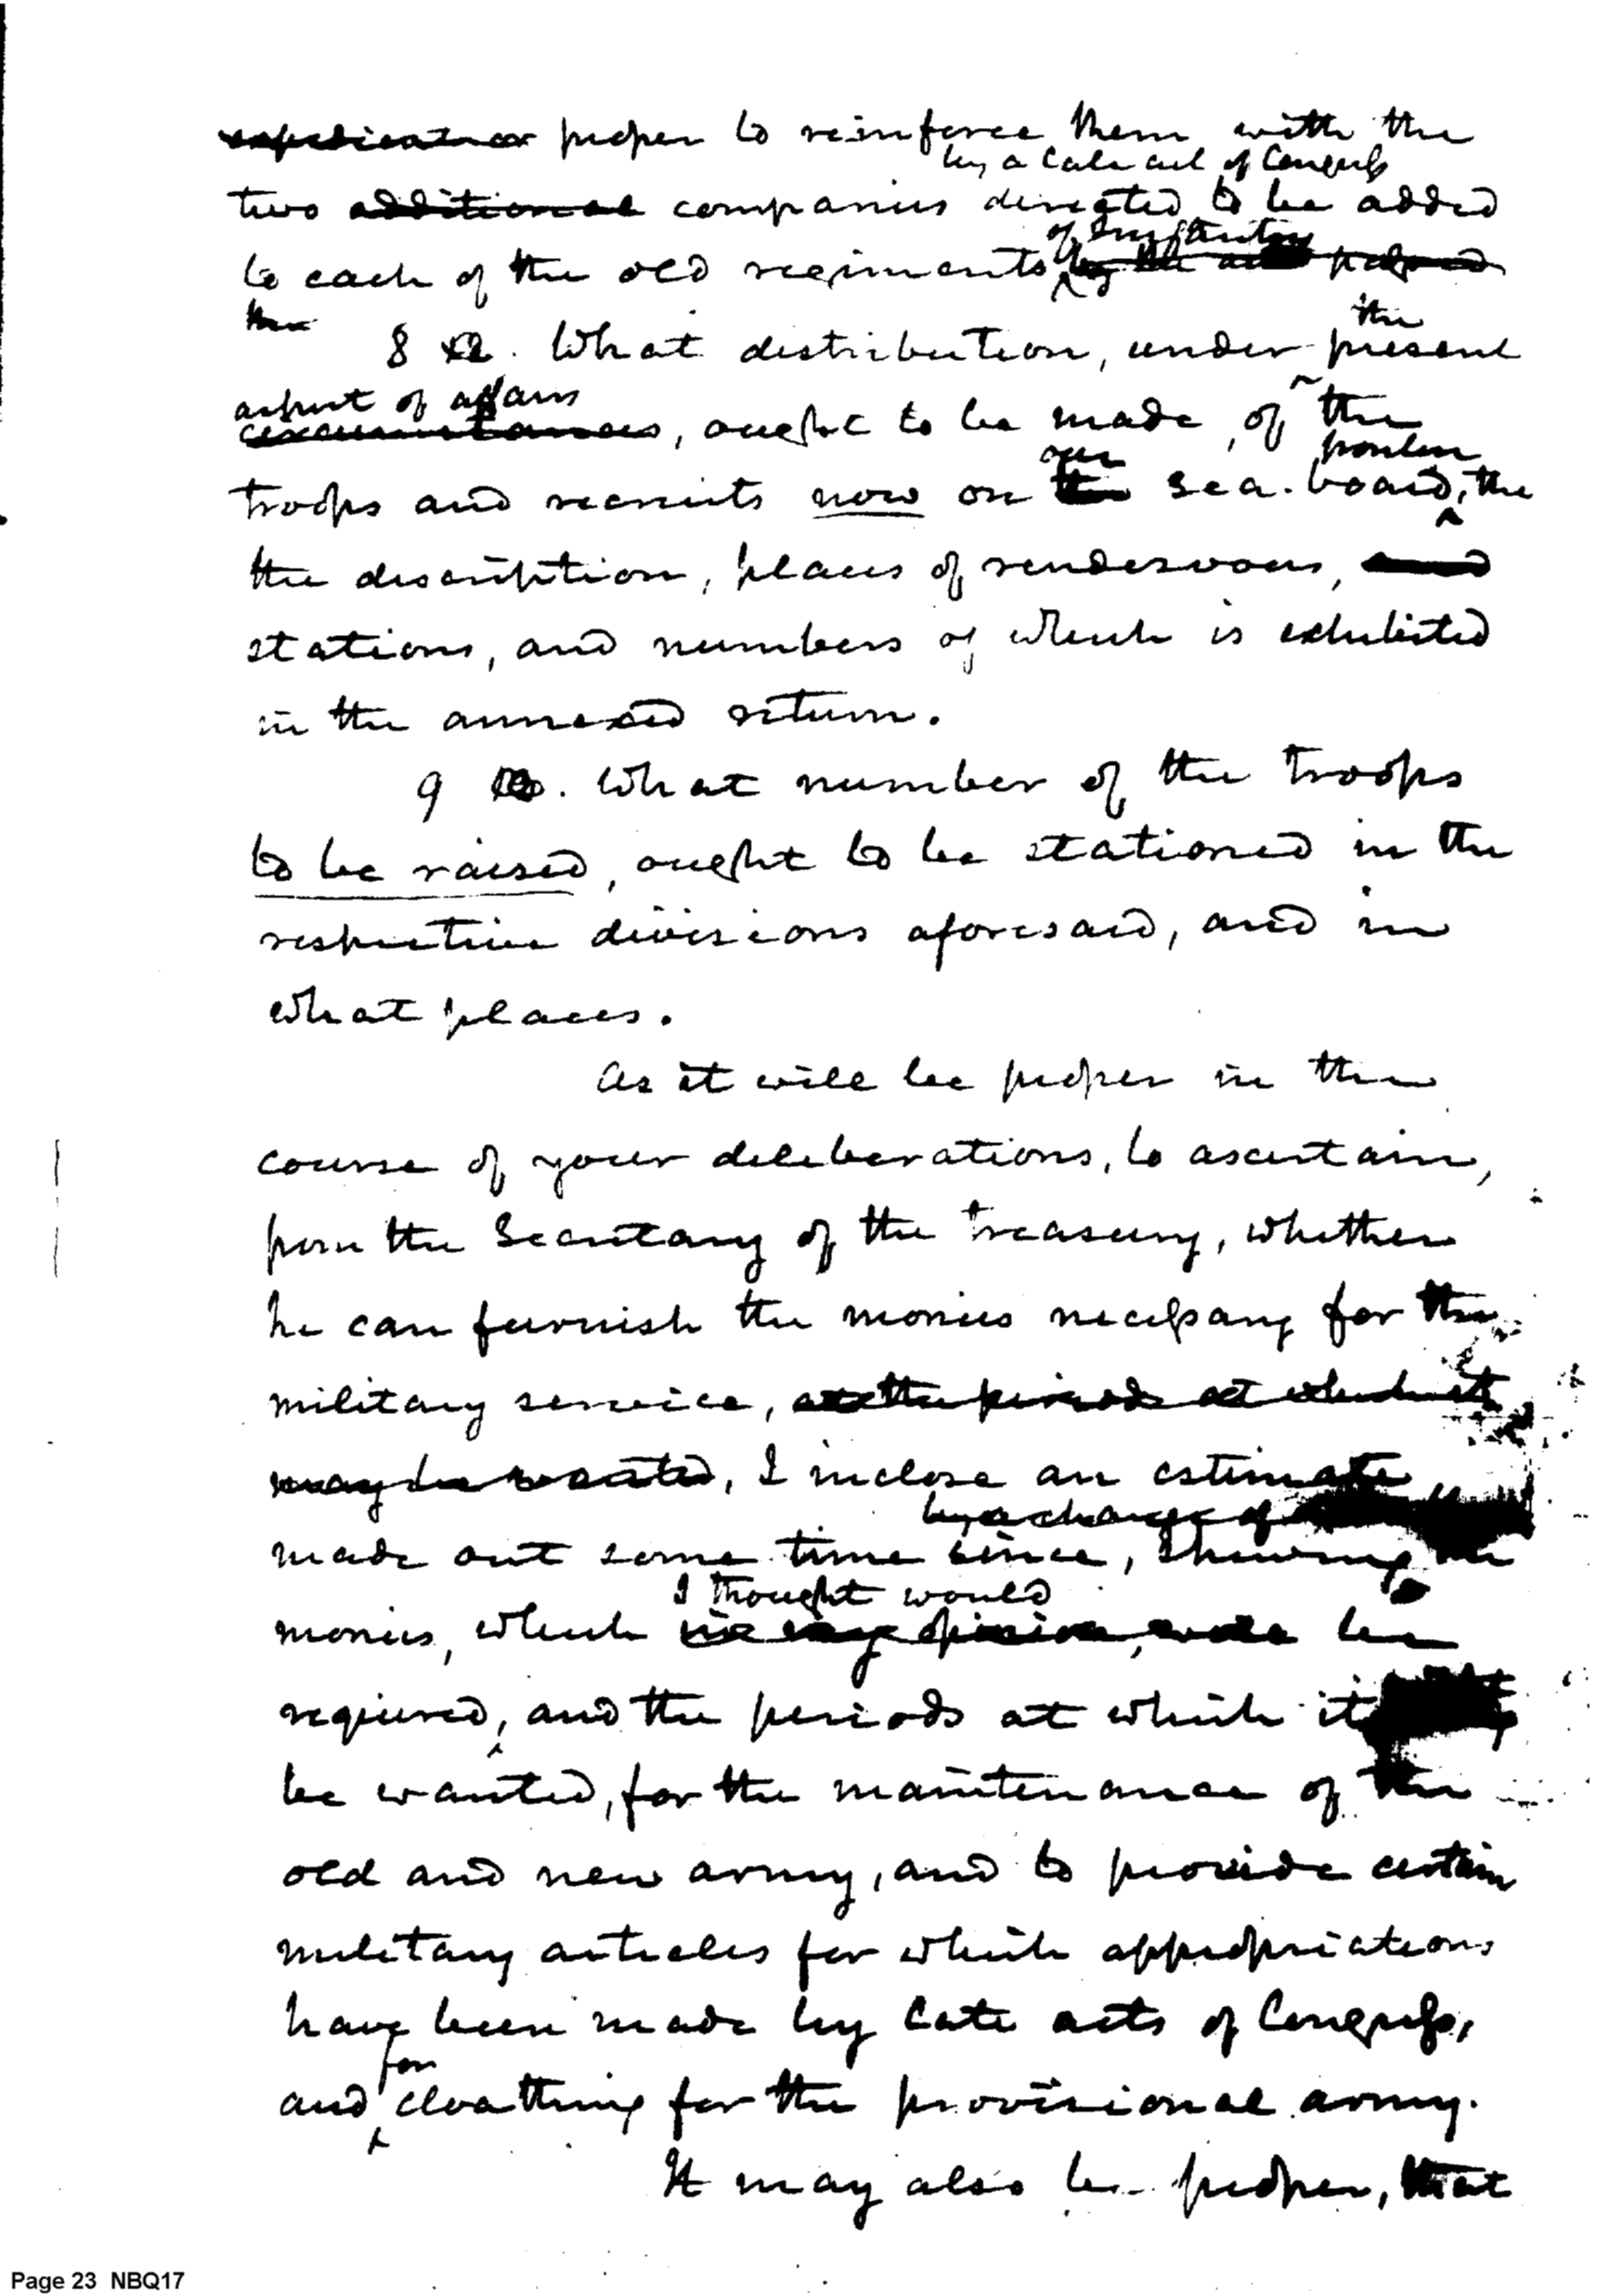 expedient or proper to reinforce them with the
by a late act of Congress
two additional companies directed to be added
of Infantry
to each of the old regiments by the act
the
the
8 What distribution, under present
aspect of affairs
circumstances, ought to be made, of the
our frontier
troops and recruits now on the sea-board, the
the description, places of rendesvous, and
stations, and numbers of which is exhibited
in the annexed return.
9 What number of the troops
to be raised, ought to be stationed in the
respective divisions aforesaid, and in
what places.
As it will be proper in the
course of your deliberations, to ascertain,
from the Secretary of the Treasury, whether
he can furnish the monies necessary for the
military service, at the periods at which it
may be wanted, I inclose an estimate
by a change of
made out some time since, shewing the
I thought would
monies, which in my opinion, will be
required, and the periods at which it
be wanted, for the maintenance of the
old and new army, and to provide certain
military articles for which appropriations
have been made by late acts of Congress,
for
and cloathing for the provisional army.
It may also be proper, that
Page 23 NBQ17